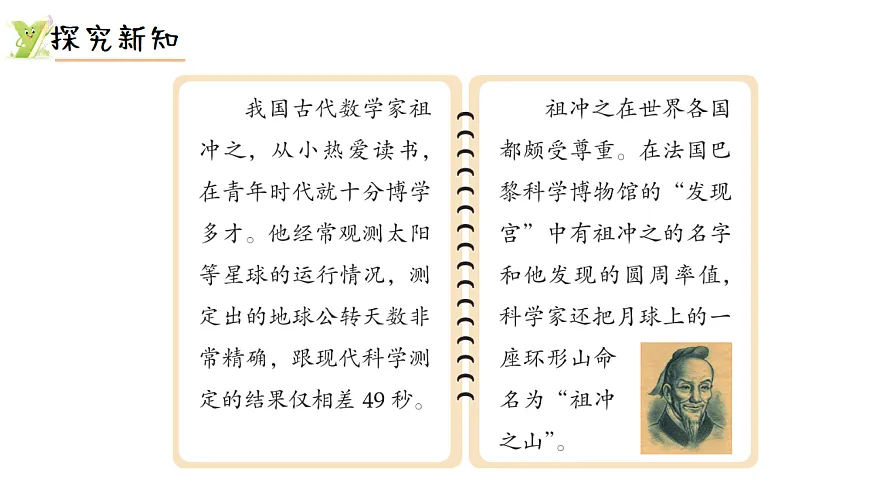 探究新知
我国古代数学家祖
冲之，从小热爱读书，
在青年时代就十分博学
多才。他经常观测太阳
等星球的运行情况，测
定出的地球公转天数非
常精确，跟现代科学测
定的结果仅相差 49 秒。
祖冲之在世界各国
都颇受尊重。在法国巴
黎科学博物馆的“发现
宫”中有祖冲之的名字
和他发现的圆周率值，
科学家还把月球上的一
座环形山命
名为“祖冲
之山”。